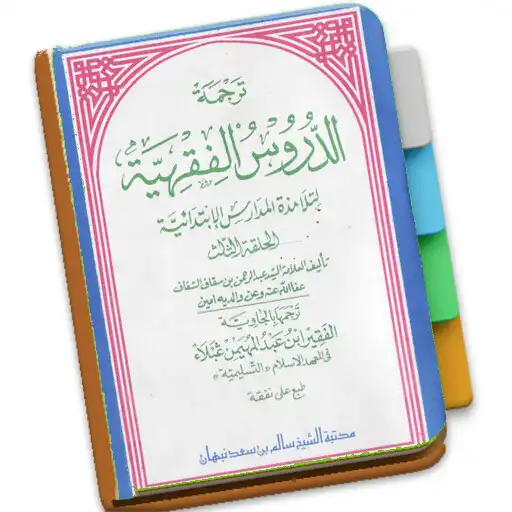 ترجمة
الدُّرُوسُ الفِقْهِيَّة
لتلامذة المدارس الابتدائيّة
الحلقة الثالث
تأليف العلامة السيّد عبد الرحمن بن سقاف السقاف
عفا الله عنه وعن والديه امين
ترجمها بالجاويّة
الفقير ابنُ عبد المهيمن
في المعهد الاسلام «التسليمية»
طبع على نفقة
مكتبة الشيخ سالم بن سعد نبهان